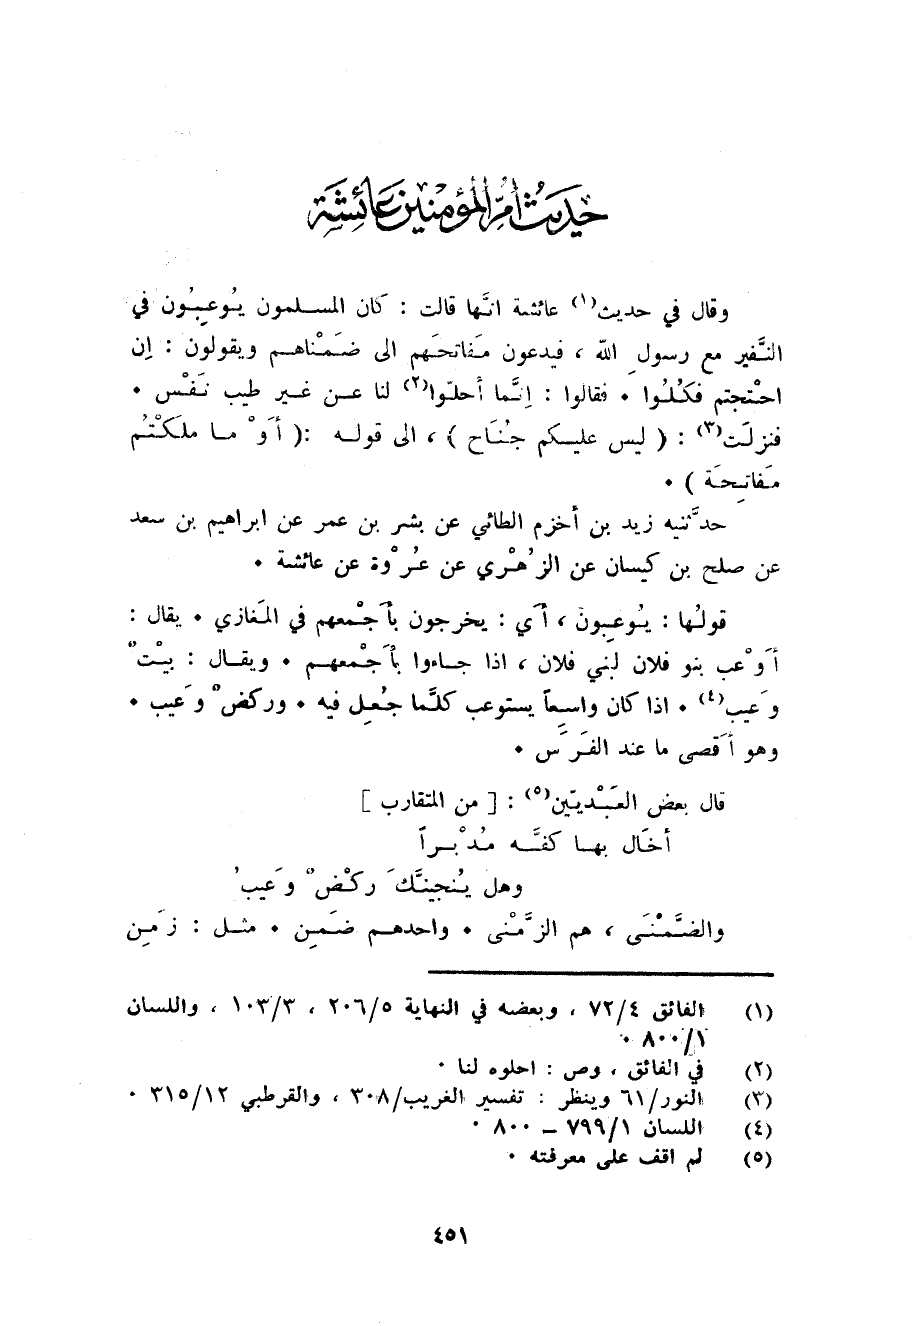 حديث أم المؤمنين عائشة
وقال في حديث(١) عائشة انَّها قالت : كان المسلمون يُوعِبُون في
النَّفير مع رسولِ الله ، فيدعون مَفاتحَهم الى ضَمْناهم ويقولون : إن
احْتجتم فكُلُوا ٠ فقالوا : إنَّما أحلّوا(٢) لنا عن غير طيب نَفْس ٠
فنزلَت(٣) : ( ليس عليكم جُنَاح ) ، الى قوله :( أَوْ ما ملكْتُم
مَفاتِحَة ) ٠
حدَّثنيه زيد بن أخزم الطائي عن بشر بن عمر عن ابراهيم بن سعد
عن صلح بن كيسان عن الزُهْري عن عُرْوة عن عائشة ٠
قولُها : يُوعِبونَ ، أَي : يخرجون بأَجْمعهم في المَغازي ٠ يقال :
أَوْعب بنو فلان لبني فلان ، اذا جاءوا بأَجْمعهم ٠ ويقال : بيْتٌ
وَعيب(٤) ٠ اذا كان واسِعاً يستوعب كلَّما جُعل فيه ٠ وركضٌ وَعيب ٠
وهو أَقصى ما عند الفَرَس ٠
قال بعض العَبْديّين(٥) : [ من المتقارب ]
أخَال بها كفَّه مُدْبراً
وهل يُنجينَّكَ ركْضٌ وَعيبُ
والضَّمْنَى ، هم الزَّمْنى ٠ واحدهم ضَمِن ٠ مثل : زَمِن
(١) الفائق ٧٢/٤ ، وبعضه في النهاية ٢٠٦/٥ ، ١٠٣/٣ ، واللسان
٨٠٠/١ ٠
(٢) في الفائق ، وص : احلوه لنا ٠
(٣) النور/٦١ وينظر : تفسير الغريب/٣٠٨ ، والقرطبي ٣١٥/١٢ ٠
(٤) اللسان ٧٩٩/١ ــ ٨٠٠ ٠
(٥) لم اقف على معرفته ٠
٤٥١